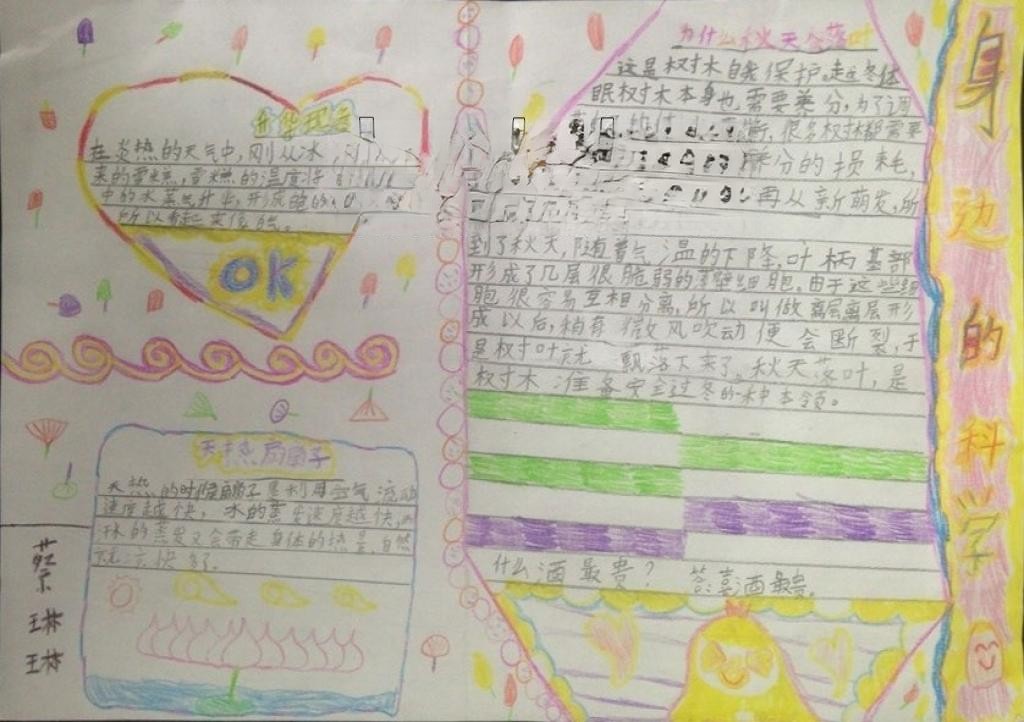 身边的科学
升华现象
在炎热的天气中,刚从冰
来的雪糕,雪糕的温度将
中的水蒸气升华,形成的
所以看起来像
OK
天热扇扇子
天热的时候扇扇子是利用空气流动
速度越快,水的蒸发速度越快,
体的蒸发又会带走身体的热量,自然
就凉快多了。
蔡琳琳
为什么秋天会落叶
这是树木自我保护。走近冬体
眠树木本身也需要养分,为了调
很多树木都需要
养分的损耗,
再从新萌发,所
到了秋天,随着气温的下降,叶柄基部
形成了几层很脆弱的薄壁细胞。由于这些细
胞很容易互相分离,所以叫做离层离层形
成以后,稍有微风吹动便会断裂,于
是树叶就飘落下来了。秋天落叶,是
树木准备安全过冬的一种本领。
什么酒最贵?答:喜酒最贵。